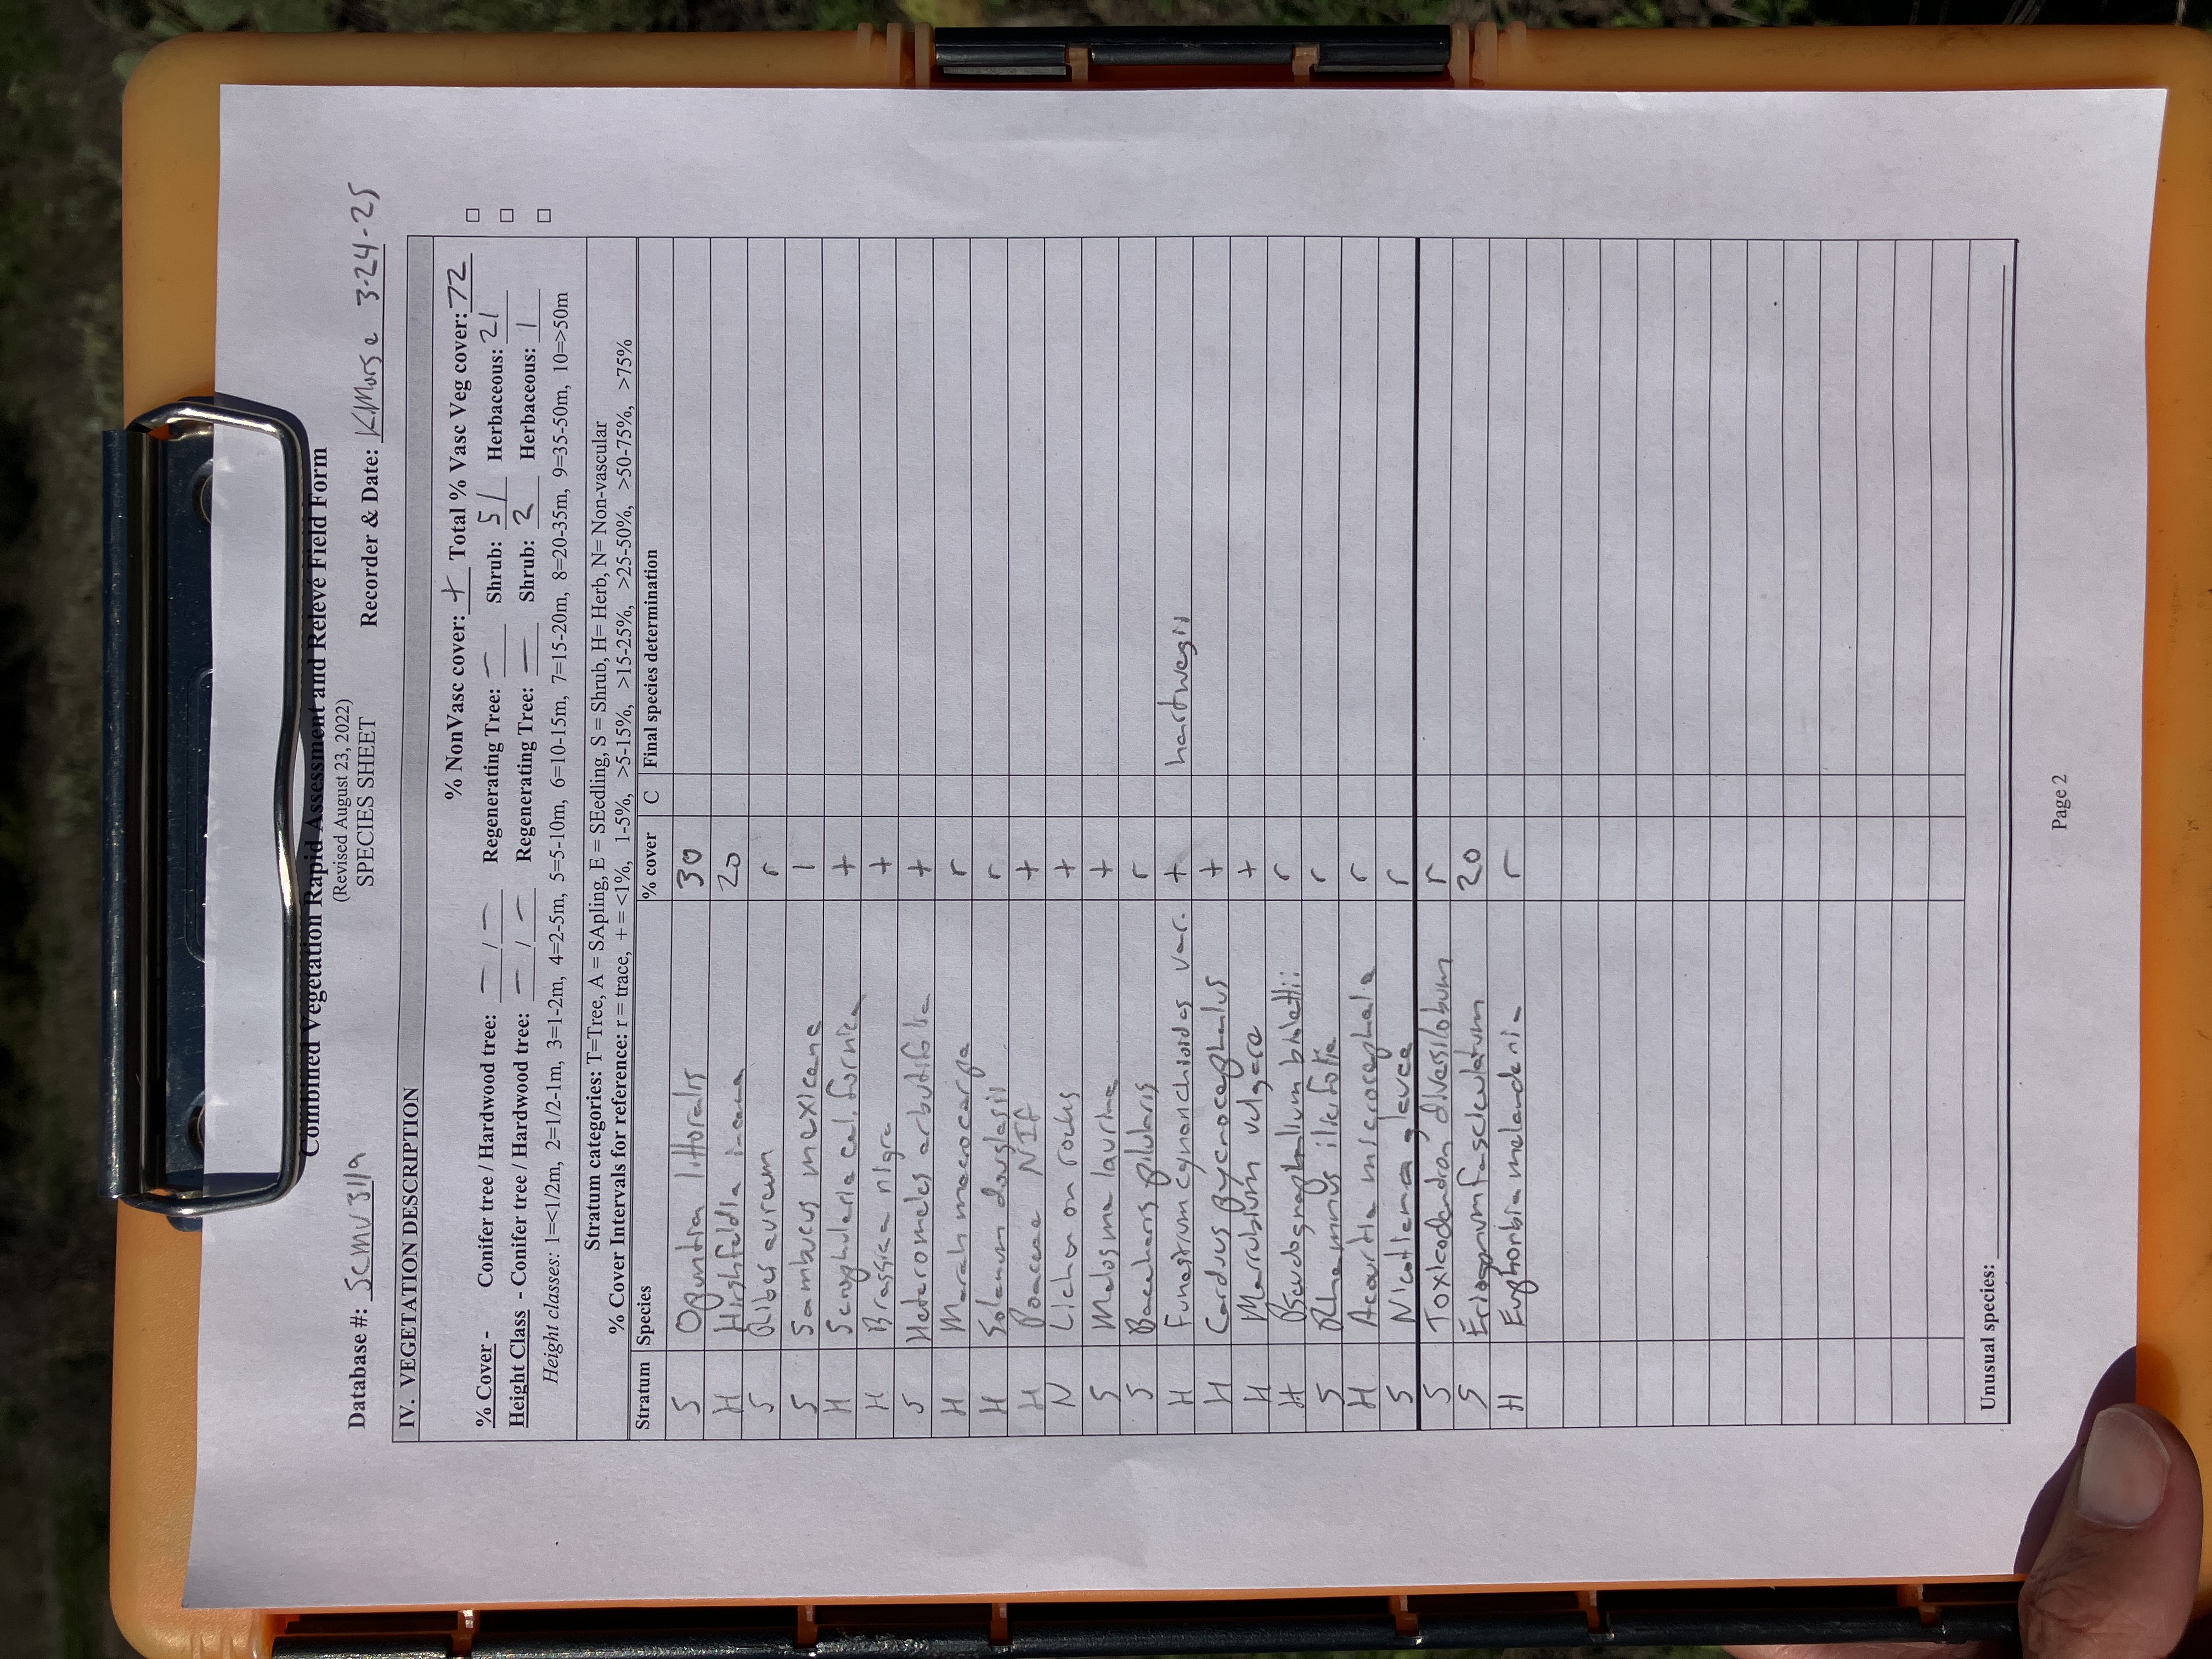 Combined Vegetation Rapid Assessment and Relevé Field Form
(Revised August 23, 2022)
SPECIES SHEET
Database #: SCMV311a Recorder & Date: KMorse 3-24-25
IV. VEGETATION DESCRIPTION
% NonVasc cover: + Total % Vasc Veg cover: 72
% Cover - Conifer tree / Hardwood tree: — / — Regenerating Tree: — Shrub: 51 Herbaceous: 21 □
Height Class - Conifer tree / Hardwood tree: — / — Regenerating Tree: — Shrub: 2 Herbaceous: 1 □
Height classes: 1=<1/2m, 2=1/2-1m, 3=1-2m, 4=2-5m, 5=5-10m, 6=10-15m, 7=15-20m, 8=20-35m, 9=35-50m, 10=>50m □
Stratum categories: T=Tree, A = SApling, E = SEedling, S = Shrub, H= Herb, N= Non-vascular
% Cover Intervals for reference: r = trace, + = <1%, 1-5%, >5-15%, >15-25%, >25-50%, >50-75%, >75%
Stratum Species % cover C Final species determination
S Opuntia littoralis 30
H Hirshfeldia incana 20
S Ribes aureum r
S Sambucus mexicana 1
H Scrophularia californica +
H Brassica nigra +
S Heteromeles arbutifolia +
H Marah macrocarpa r
H Solanum douglasii r
H Poaceae NIF +
N Lichen on rocks +
S Malosma laurina +
S Baccharis pilularis r
H Funastrum cynanchioides var. + hartwegii
H Carduus pycnocephalus +
H Marrubium vulgare +
H Pseudognaphalium bioletti r
S Rhamnus ilicifolia r
H Acourtia microcephala r
S Nicotiana glauca r
S Toxicodendron diversilobum r
S Eriogonum fasciculatum 20
H Euphorbia melandenia r
Unusual species:
Page 2